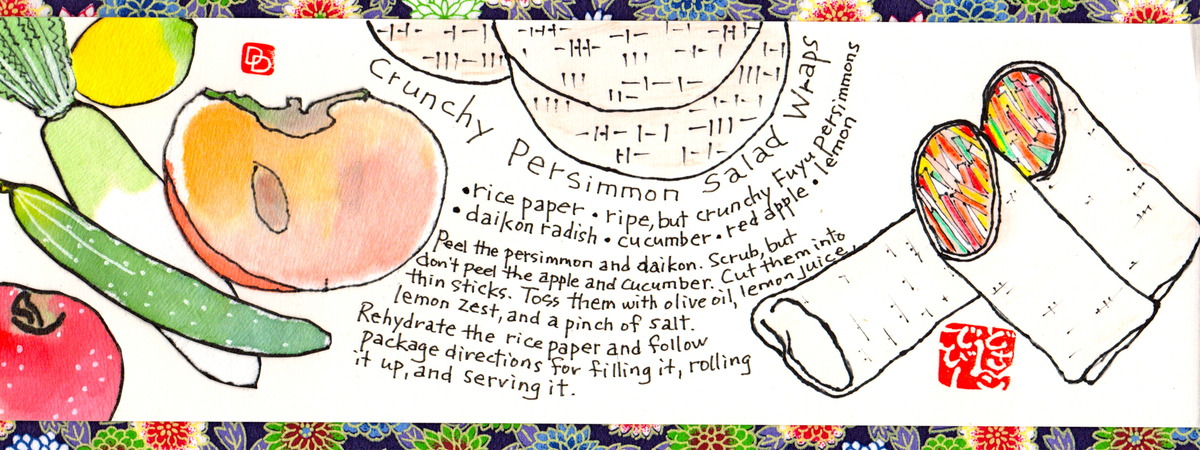 DD
Crunchy Persimmon Salad Wraps
•rice paper • ripe, but crunchy Fuyu persimmons
•daikon radish • cucumber • red apple • lemon
Peel the persimmon and daikon. Scrub, but
don't peel the apple and cucumber. Cut them into
thin sticks. Toss them with olive oil, lemon juice,
lemon zest, and a pinch of salt.
Rehydrate the rice paper and follow
package directions for filling it, rolling
it up, and serving it.